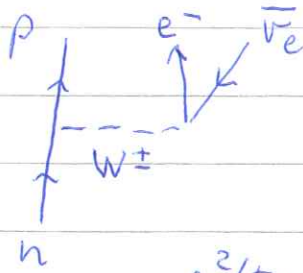 p e⁻ ν̄e
W±
n